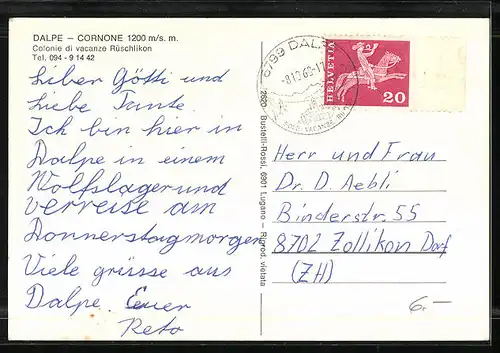 DALPE — CORNONE 1200 m/s. m.
Colonie di vacanze Rüschlikon
Tel. 094 - 9 14 42
Lieber Götti und
liebe Tante
Ich bin hier in
Dalpe in einem
Wolfslager und
verreise am
Donnerstagmorgen
Viele grüsse aus
Dalpe Euer
Reto
2620 Bustelli-Rossi, 6901 Lugano — Riprod. vietata
6799 DALPE
HELVETIA
20
Herr und Frau
Dr. D. Aebli
Binderstr. 55
8702 Zollikon Dorf
(ZH)
6.-